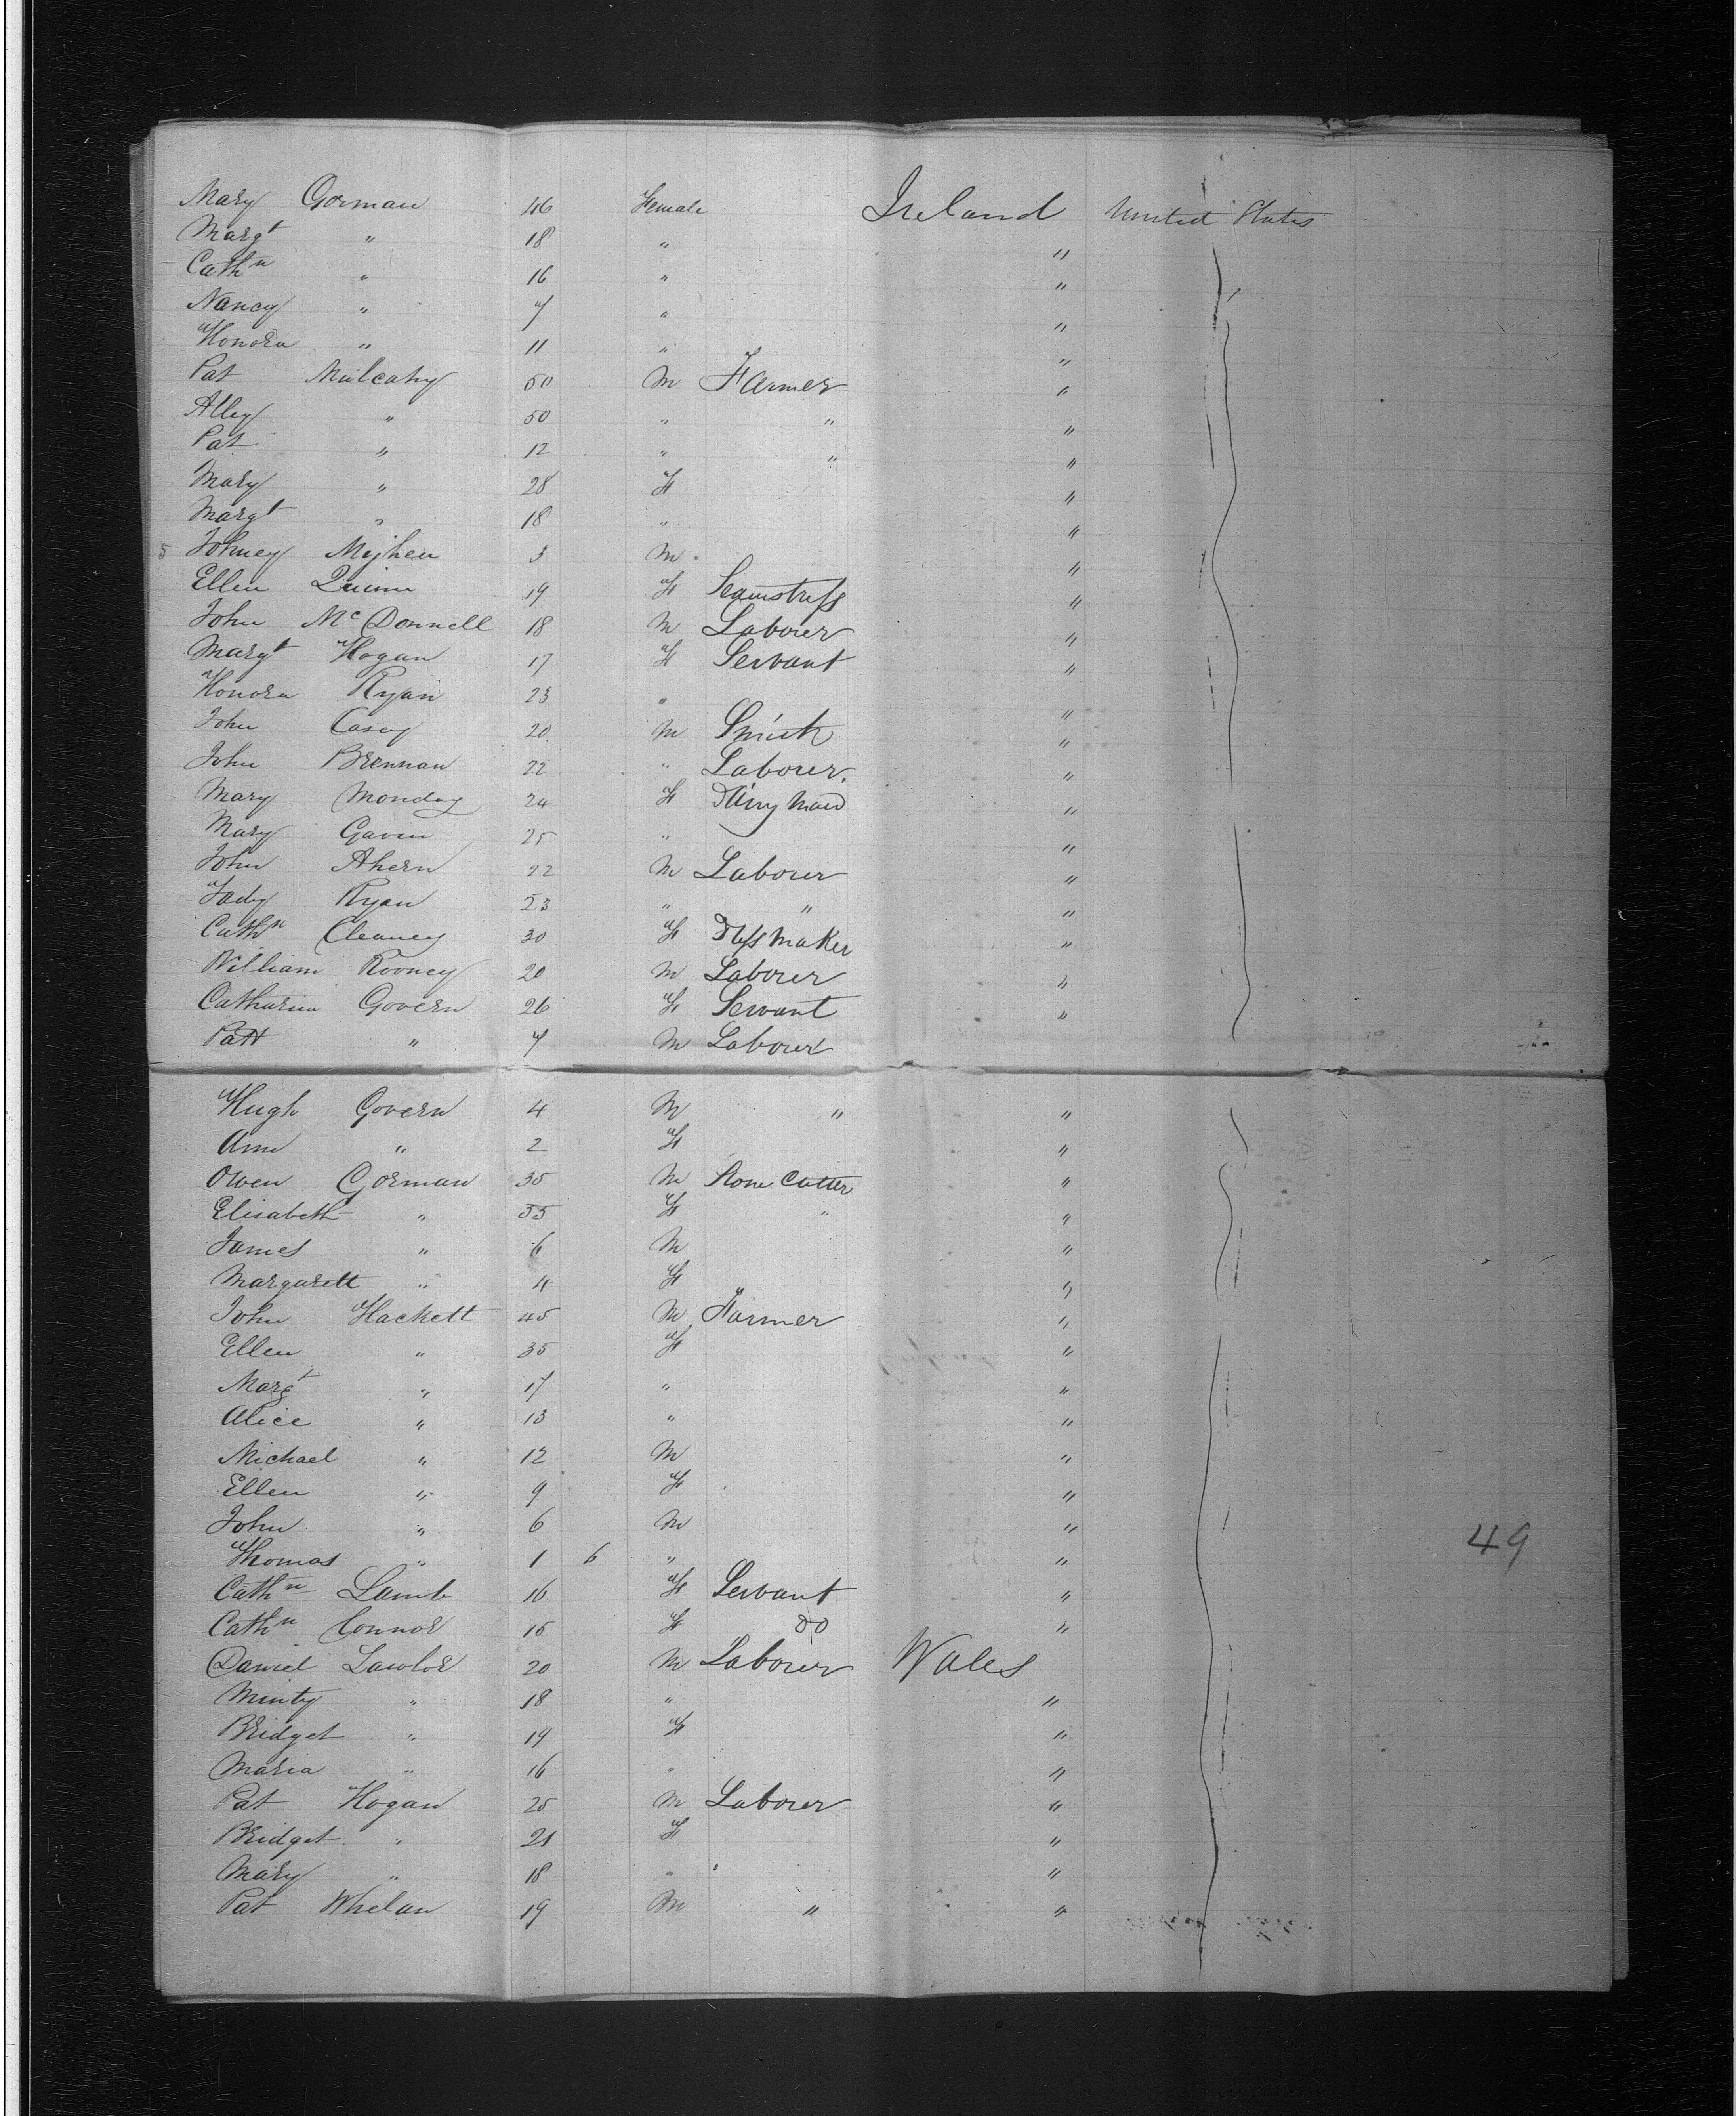 Mary Gorman 46 Female Ireland United States
Margt " 18 " "
Cathn " 16 " "
Nancy " 7 " "
Honora " 11 " "
Pat Mulcahy 50 M Farmer "
Alley " 50 " " "
Pat " 12 " " "
Mary " 28 F "
Margt " 18 " "
5 Johney 3 M "
Ellen Quinn 19 F Seamstress "
John McDonnell 18 M Laborer "
Margt Hogan 17 F Servant "
Honora Ryan 23 " "
John Casey 20 M Smith "
John Brennan 22 " Laborer. "
Mary Monday 24 F Dairy Maid "
Mary Gavin 25 " "
John Ahern 22 M Laborer "
Ryan 23 " " "
Cathn Cleancy 30 F Dress Maker "
William Rooney 20 M Laborer "
Catharina Govern 26 F Servant "
Patt " 7 M Laborer
Hugh Govern 4 M " "
Ann " 2 F "
Owen Gorman 35 M Stone Cutter "
Elisabeth " 35 F " "
James " 6 M "
Margarett " 4 F "
John Hackett 45 M Farmer "
Ellen " 35 F "
Margt " 17 " "
Alice " 13 " "
Michael " 12 M "
Ellen " 9 F "
John " 6 M "
49
Thomas " 1 6 " "
Cathn Lamb 16 F Servant "
Cathn Connor 15 F DO "
Daniel Lawlor 20 M Laborer Wales
Minty " 18 " "
Bridget " 19 F "
Maria " 16 " "
Pat Hogan 25 M Laborer "
Bridget " 21 F "
Mary " 18 " "
Pat Whelan 19 M " "